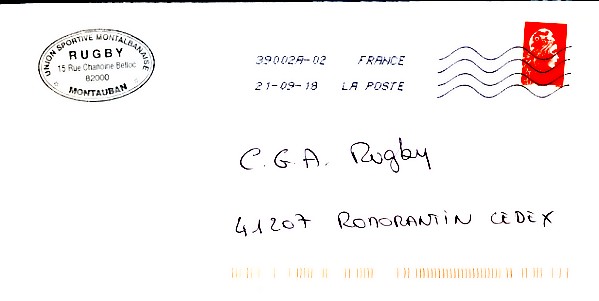 UNION SPORTIVE MONTALBANAISE
RUGBY
15 Rue Chanoine Belloc
82000
MONTAUBAN
39002A-02 FRANCE
21-09-18 LA POSTE
C.G.A. Rugby
41207 ROMORANTIN CEDEX